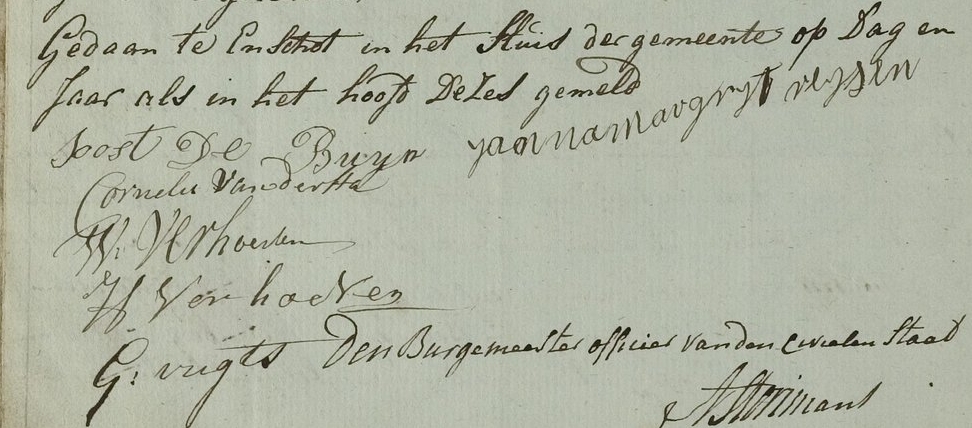 Gedaan te Enschot in het Huis der gemeente op Dag en
Jaar als in het hoofd Dezes gemeld
Joost De Bruyn jannamargryt
Cornelis Van der
W. Verhoeven
Verhoeven
G: vugts Den Burgemeester officier van den civielen Staat